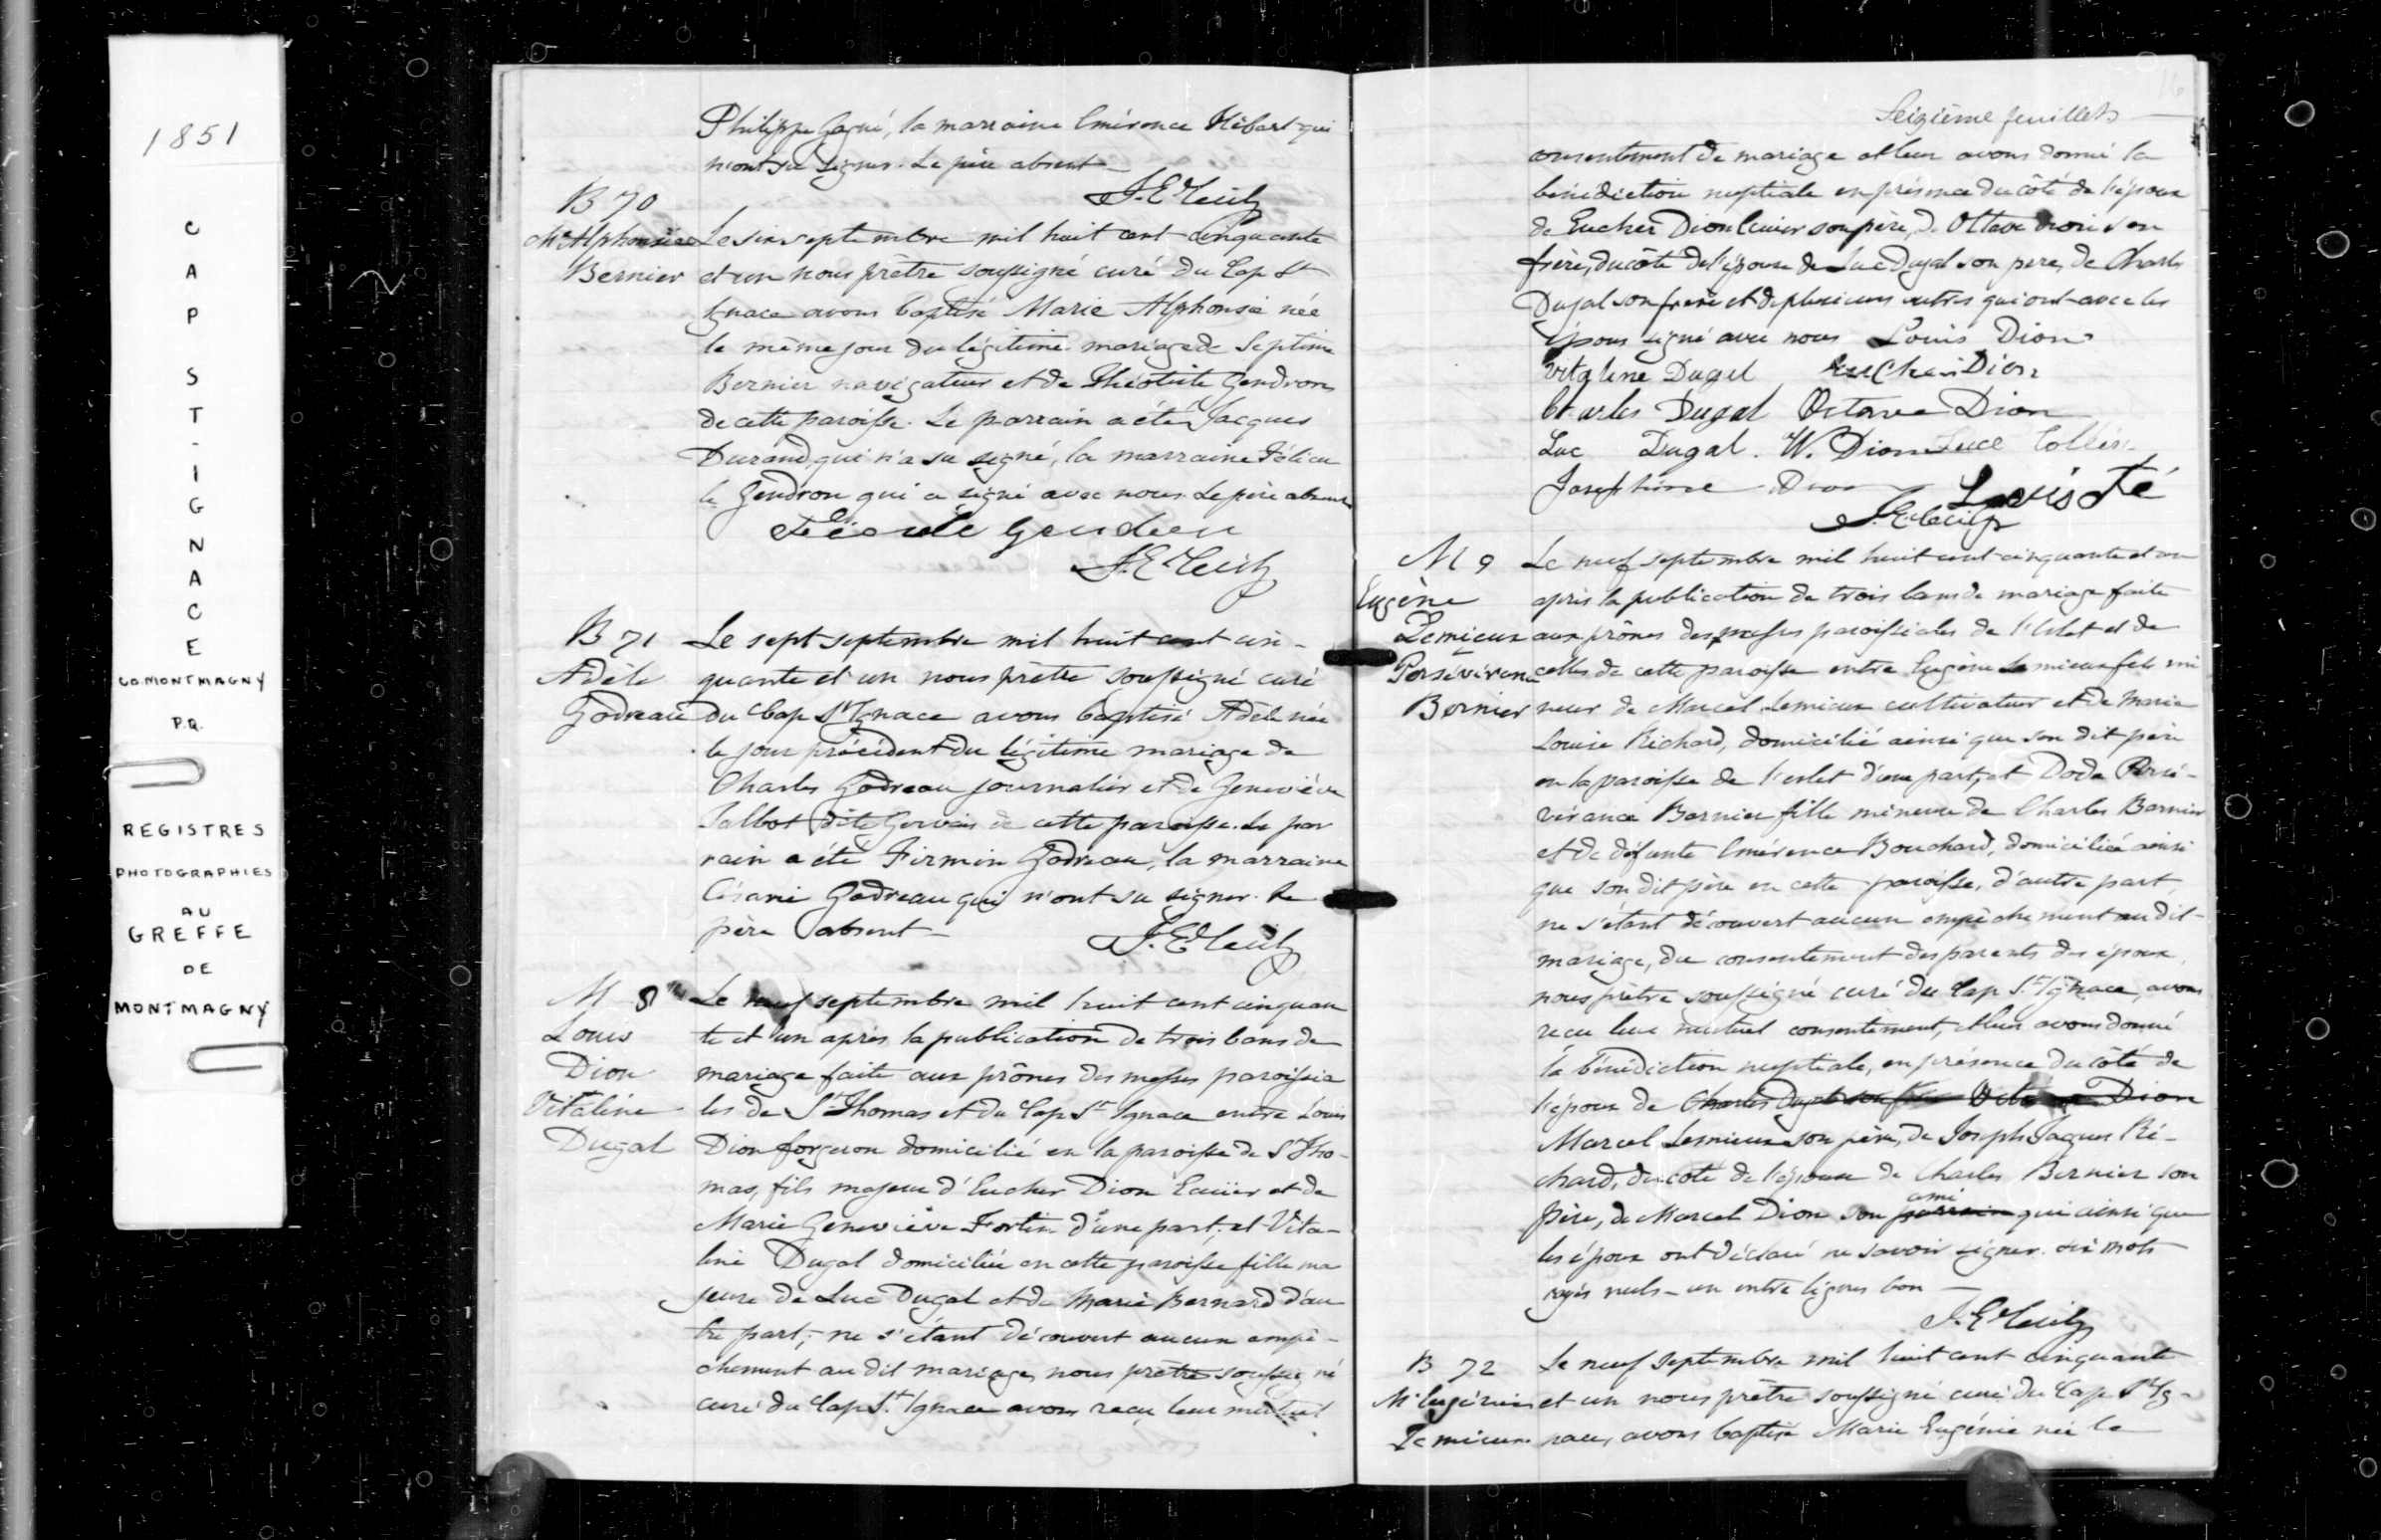 1851
CAP ST-IGNACE
CO. MONTMAGNY
P.Q.
REGISTRES
PHOTOGRAPHIES
AU
GREFFE
DE
MONTMAGNY
Philippe Gagné, la marraine Emérence qui
n'ont su signer. Le père absent
B 70
Mie Alphonsine
Bernier
Le six septembre mil huit cent cinquante
et un nous prêtre soussigné curé du Cap St
Ignace avons baptisé Marie Alphonsie née
le même jour du légitime mariage de Septime
Bernier navigateur et de Théotiste Gendron
de cette paroisse. Le parrain a été Jacques
Durand, qui n'a su signé, la marraine Félicu
le Gendron qui a signé avec nous. Le père absent
B 71
Adèle
Godreau
Le sept septembre mil huit cent cin-
quante et un nous prêtre soussigné curé
du Cap St Ignace avons baptisé Adèle née
le jour précédent du légitime mariage de
Charles Godreau journalier et de Geneviève
Talbot dite Gervais de cette paroisse. Le par
rain a été Firmin Godreau, la marraine
Césarie Godreau qui n'ont su signer. Le
père absent
M 8
Louis
Dion
Vitaline
Dugal
Le neuf septembre mil huit cent cinquan
te et un après la publication de trois bans de
mariage faite aux prônes des messes paroissia
les de St Thomas et du Cap St Ignace entre Louis
Dion forgeron domicilié en la paroisse de St Tho-
mas, fils majeur d'Eucher Dion Ecuier et de
Marie Geneviève Fortin d'une part; et Vita-
line Dugal domiciliée en cette paroisse fille ma
jeure de Luc Dugal et de Marie Bernard d'au
tre part; ne s'étant découvert aucun empê-
chement au dit mariage, nous prêtre soussigné
curé du Cap St Ignace avons reçu leur mutuel
Seizième feuillet
consentement de mariage et leur avons donné la
bénédiction nuptiale en présence du côté de l'époux
de Eucher Dion Ecuier son père, d. Ottave Dion son
frère, du côté de l'épouse de Luc Dugal son père, de Charles
Dugal son frère et de plusieurs autres qui ont avec les
époux signé avec nous Louis Dion
vitaline Dugal Eucher Dion
Charles Dugal Octave Dion
Luc Dugal. W. Dion Luce
Josephine Dion
M 9
Eugène
Lemieux
Persévérance
Bernier
Le neuf septembre mil huit cent cinquante et un
après la publication de trois bans de mariage faite
aux prônes des messes paroissiales de l'Islet et de
celles de cette paroisse entre Eugène Lemieux fils mi
neur de Marcel Lemieux cultivateur et de Marie
Louise Richard, domicilié ainsi que son dit père
en la paroisse de l'islet d'une part, et Dode Persé-
vérance Bernier fille mineure de Charles Bernier
et de défunte Emérence Bouchard, domiciliée ainsi
que son dit père en cette paroisse, d'autre part,
ne s'étant découvert aucun empêchement au dit
mariage, du consentement des parents des époux,
nous prêtre soussigné curé du Cap St Ignace, avons
reçu leur mutuel consentement, et leur avons donné
la bénédiction nuptiale, en présence du côté de
l'époux de Charles Dugal son frère Dion
Marcel Lemieux son père, de Joseph Jaques Ri-
chard, du côté de l'épouse de Charles Bernier son
ami
père, de Marcel Dion son parrain qui ainsi que
les époux ont déclaré ne savoir signer. six mots
rayés nuls - un entre lignes bon
B 72
M Eugénie
Lemieux
Le neuf septembre mil huit cent cinquante
et un nous prêtre soussigné curé du Cap St Ig-
nace, avons baptisé Marie Eugénie née le